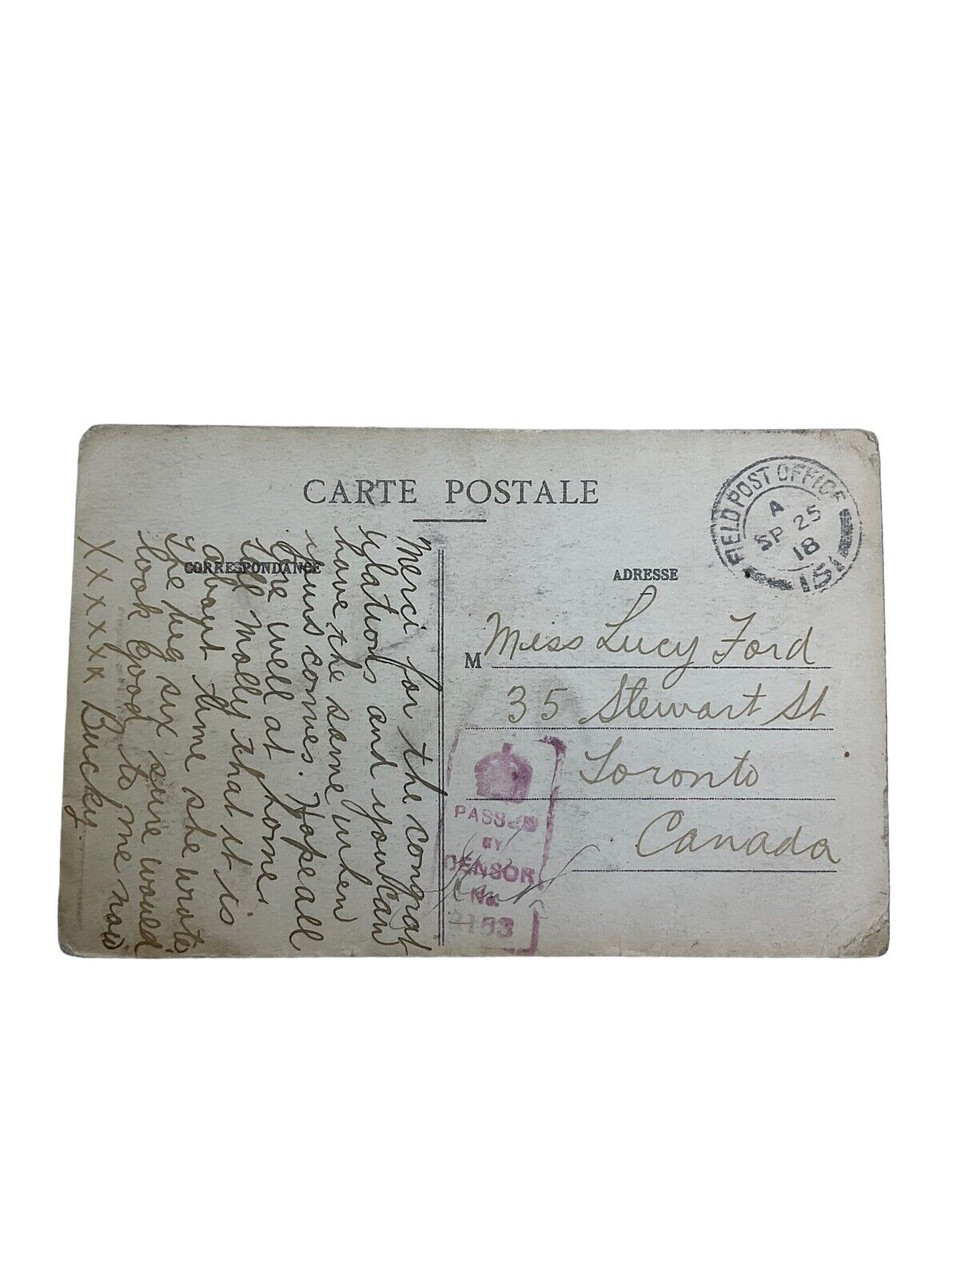 CARTE POSTALE
CORRESPONDANCE
Merci for the congrat
ulations and you can
have the same when
yours comes. Hope all
are well at home.
Tell Molly that it is
about time she wrote
The big six sure would
look good to me now
XXXXXX Bucky.
FIELD POST OFFICE
A
SP 25
18
151
ADRESSE
M Miss Lucy Ford
35 Stewart St
Toronto
Canada
PASSED
BY
CENSOR
No.